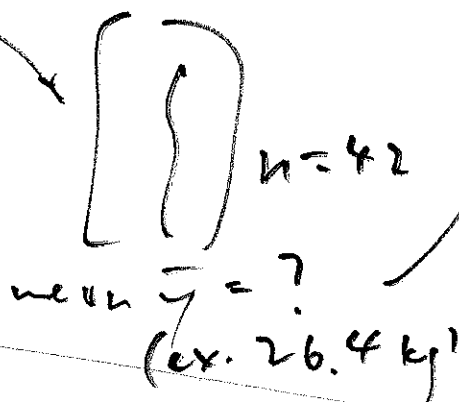 n = 42
mean ȳ = ?
(ex. 26.4 kg)